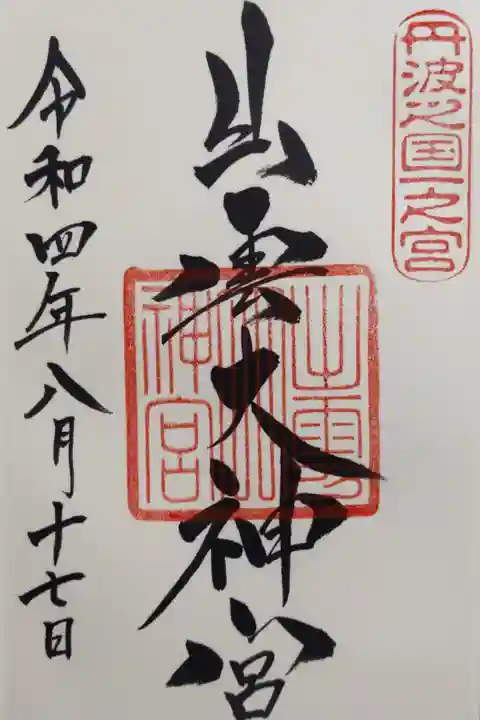 丹波之国一之宮
出雲大神宮
出雲大神宮
令和四年八月十七日